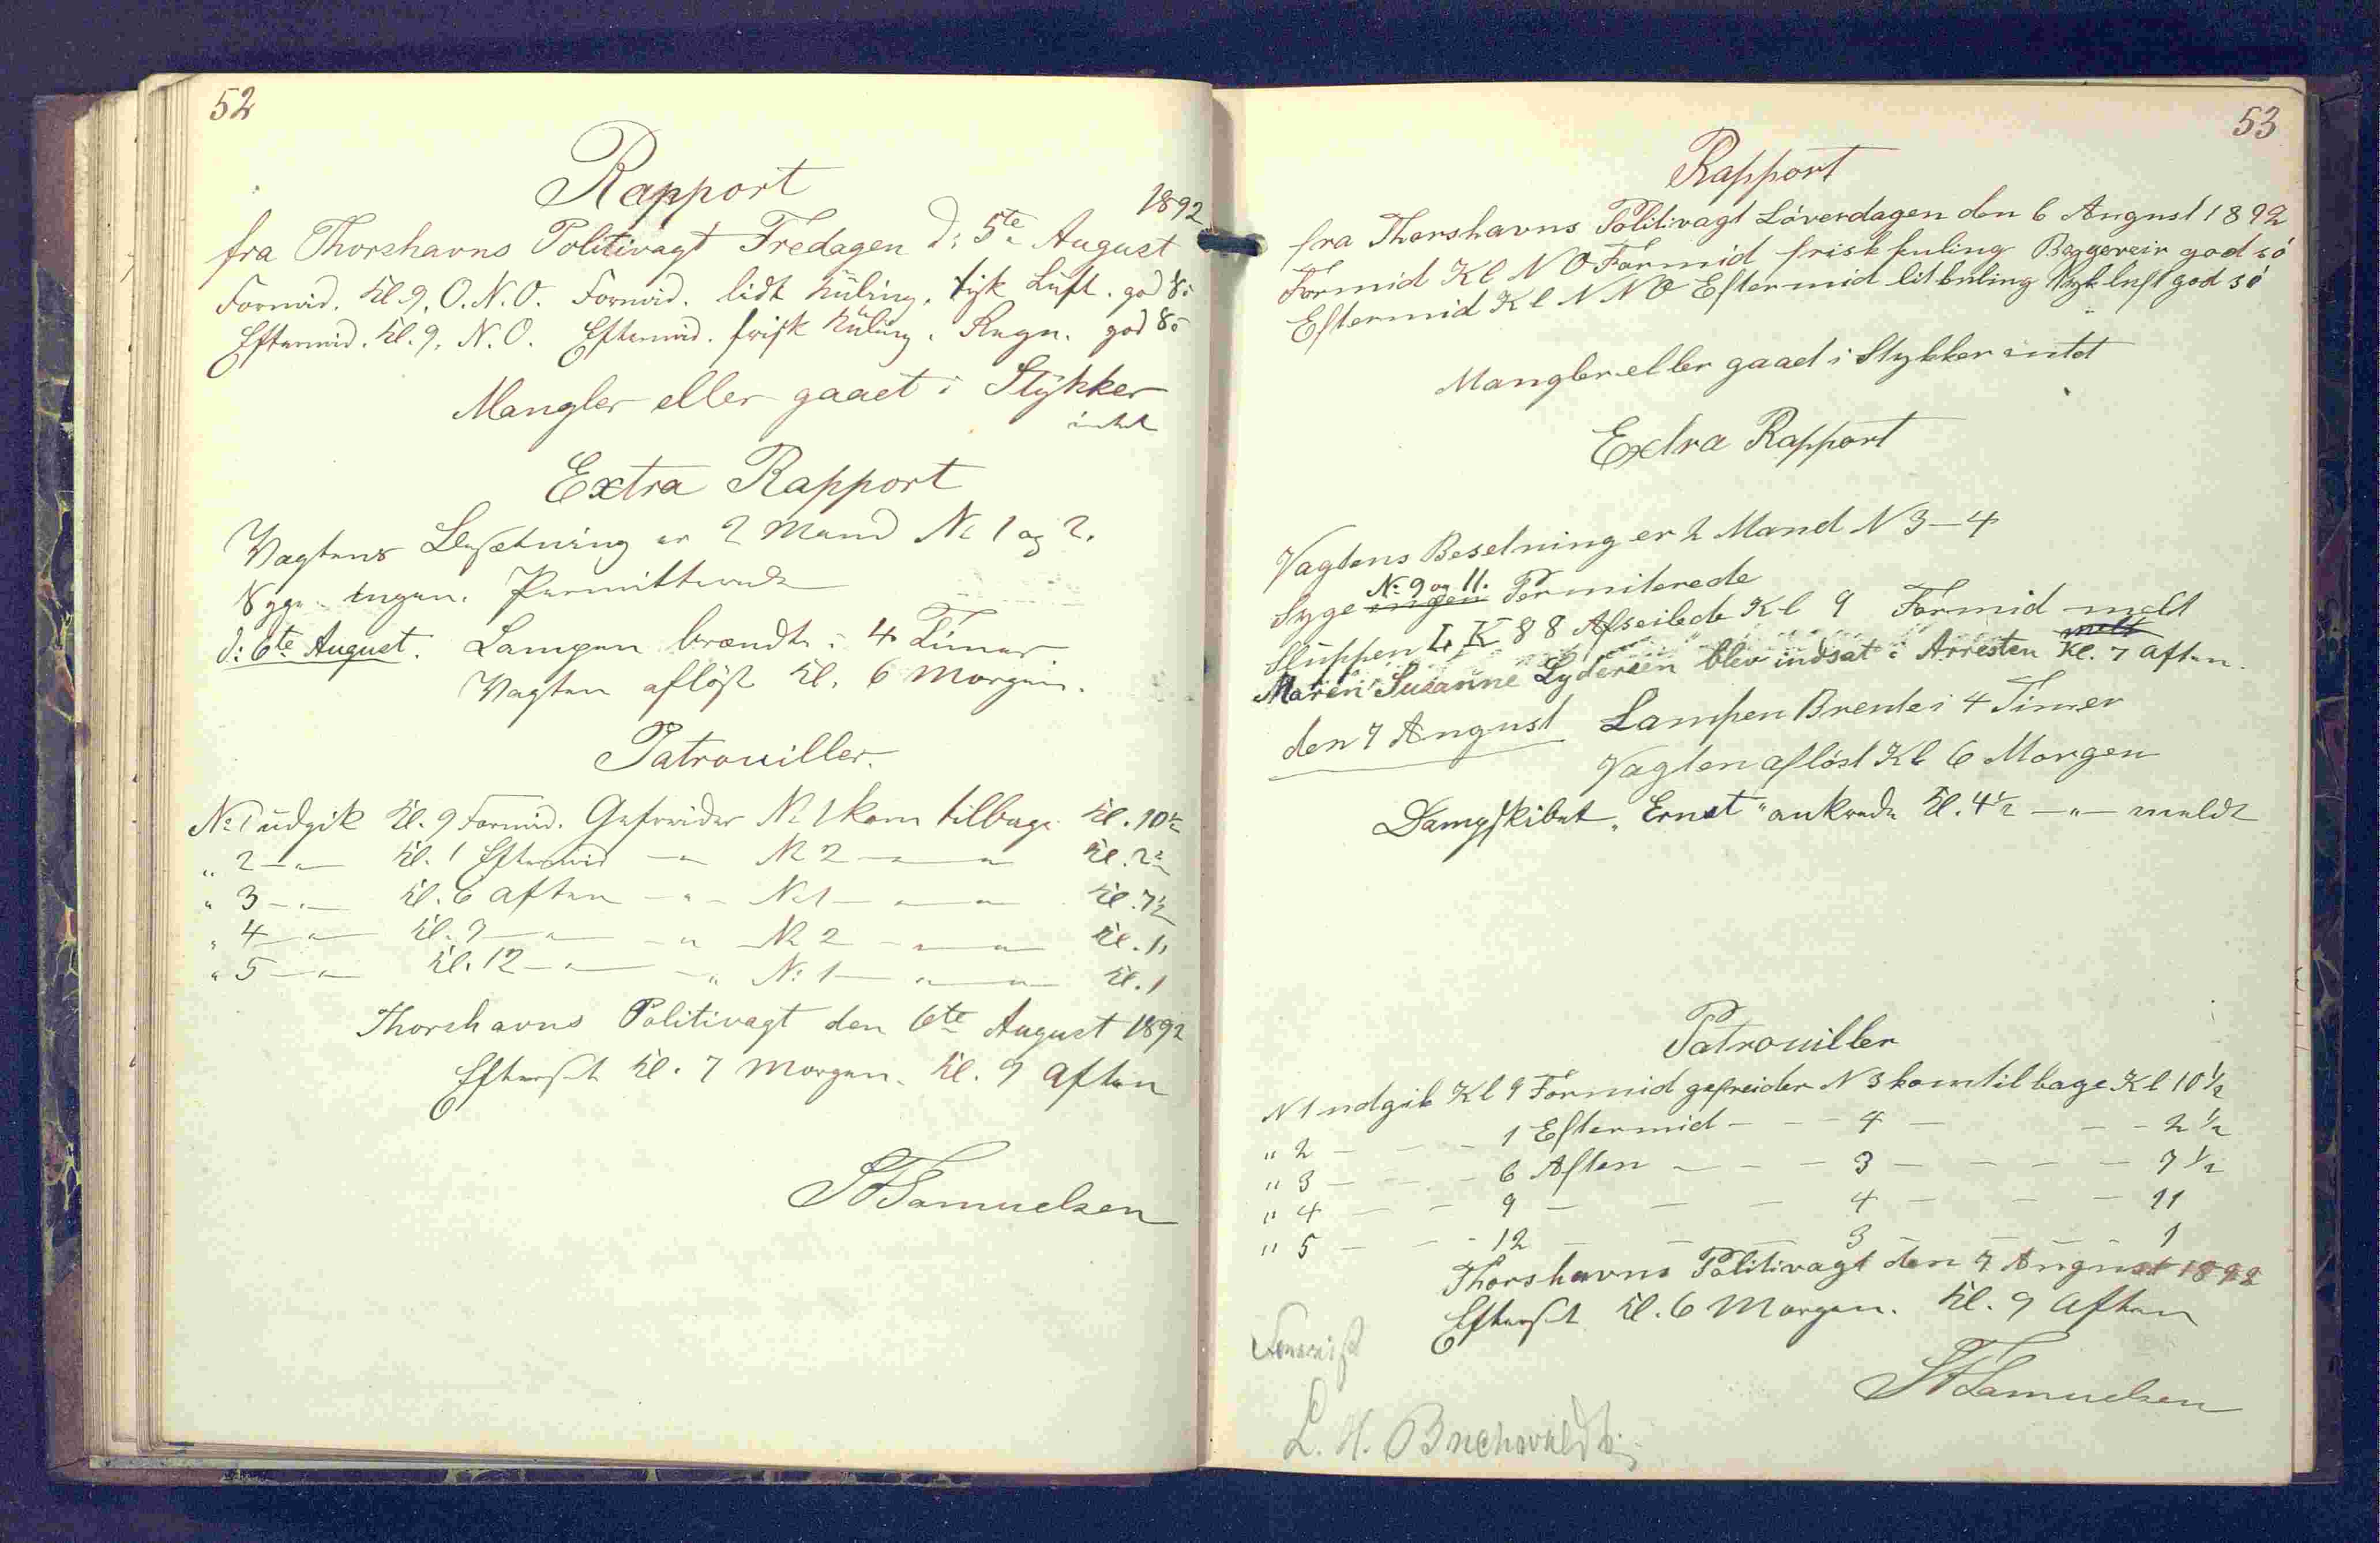 52
Rapport
1892
fra Thorshavns Politivagt Fredagen d: 5te August
Formid. Kl. 9. O.N.O. Formid. lidt Kuling. tyk Luft. god Sö
Eftermid. Kl. 9. N.O. Eftermid. frisk Kuling. Regn. god Sö
Mangler eller gaaet i Stykker
intet
Extra Rapport
Vagtens Besætning er 2 Mand No 1 og 2.
Syge ingen. Permitterede
d: 6te August. Lampen brændte i 4 Timer
Vagten aflöst Kl. 6 Morgen.
Patrouiller.
No 1 udgik Kl. 9 Formid. Gefreider No 1 kom tilbage Kl. 10½
" 2 — " — Kl. 1 Eftermid — " No 2 — " — " Kl. 2½
" 3 — " — Kl. 6 Aften — " — No 1 — " — " Kl. 7½
" 4 — " — Kl. 9 — " — " No 2 — " — " Kl. 11
" 5 — " — Kl. 12 — " — " No 1 — " — " Kl. 1
Thorshavns Politivagt den 6te August 1892
Efterset Kl. 7 Morgen. Kl. 9 Aften
Samuelsen
53
Rapport
fra Thorshavns Politivagt Löverdagen den 6 August 1892
Formid Kl N O Formid frisk kuling Byggeveir god sö
Eftermid Kl N N O Eftermid lit kuling tyk luft god sö
Mangler eller gaaet i Stykker intet
Extra Rapport
Vagtens Besetning er 2 Mand N 3—4
No 9 og 11.
Syge ingen Permiterede
Sluppen LK 88 Afseilede Kl 9 Formid melt
melt
Maren Susanne Lydersen blev indsat i Arresten Kl. 7 Aften.
den 7 August Lampen Brente i 4 Timer
Vagten aflöst Kl 6 Morgen
Dampskibet "Ernst" ankrede Kl. 4½ — " — meldt
Patrouiller
N 1 udgik Kl 9 Formid gefreider N 3 kom tilbage Kl 10½
" 2 — — - 1 Eftermid - - - 4 — - - 2½
" 3 — - - 6 Aften — - - 3 — - - - 7½
" 4 — — - 9 — — - 4 — — — 11
" 5 — — - 12 — — — 3 - - - - 1
Thorshavns Politivagt den 7 August 1892
Efterset Kl. 6 Morgen. Kl. 9 Aften
Samuelsen
L. H. Buchwaldt